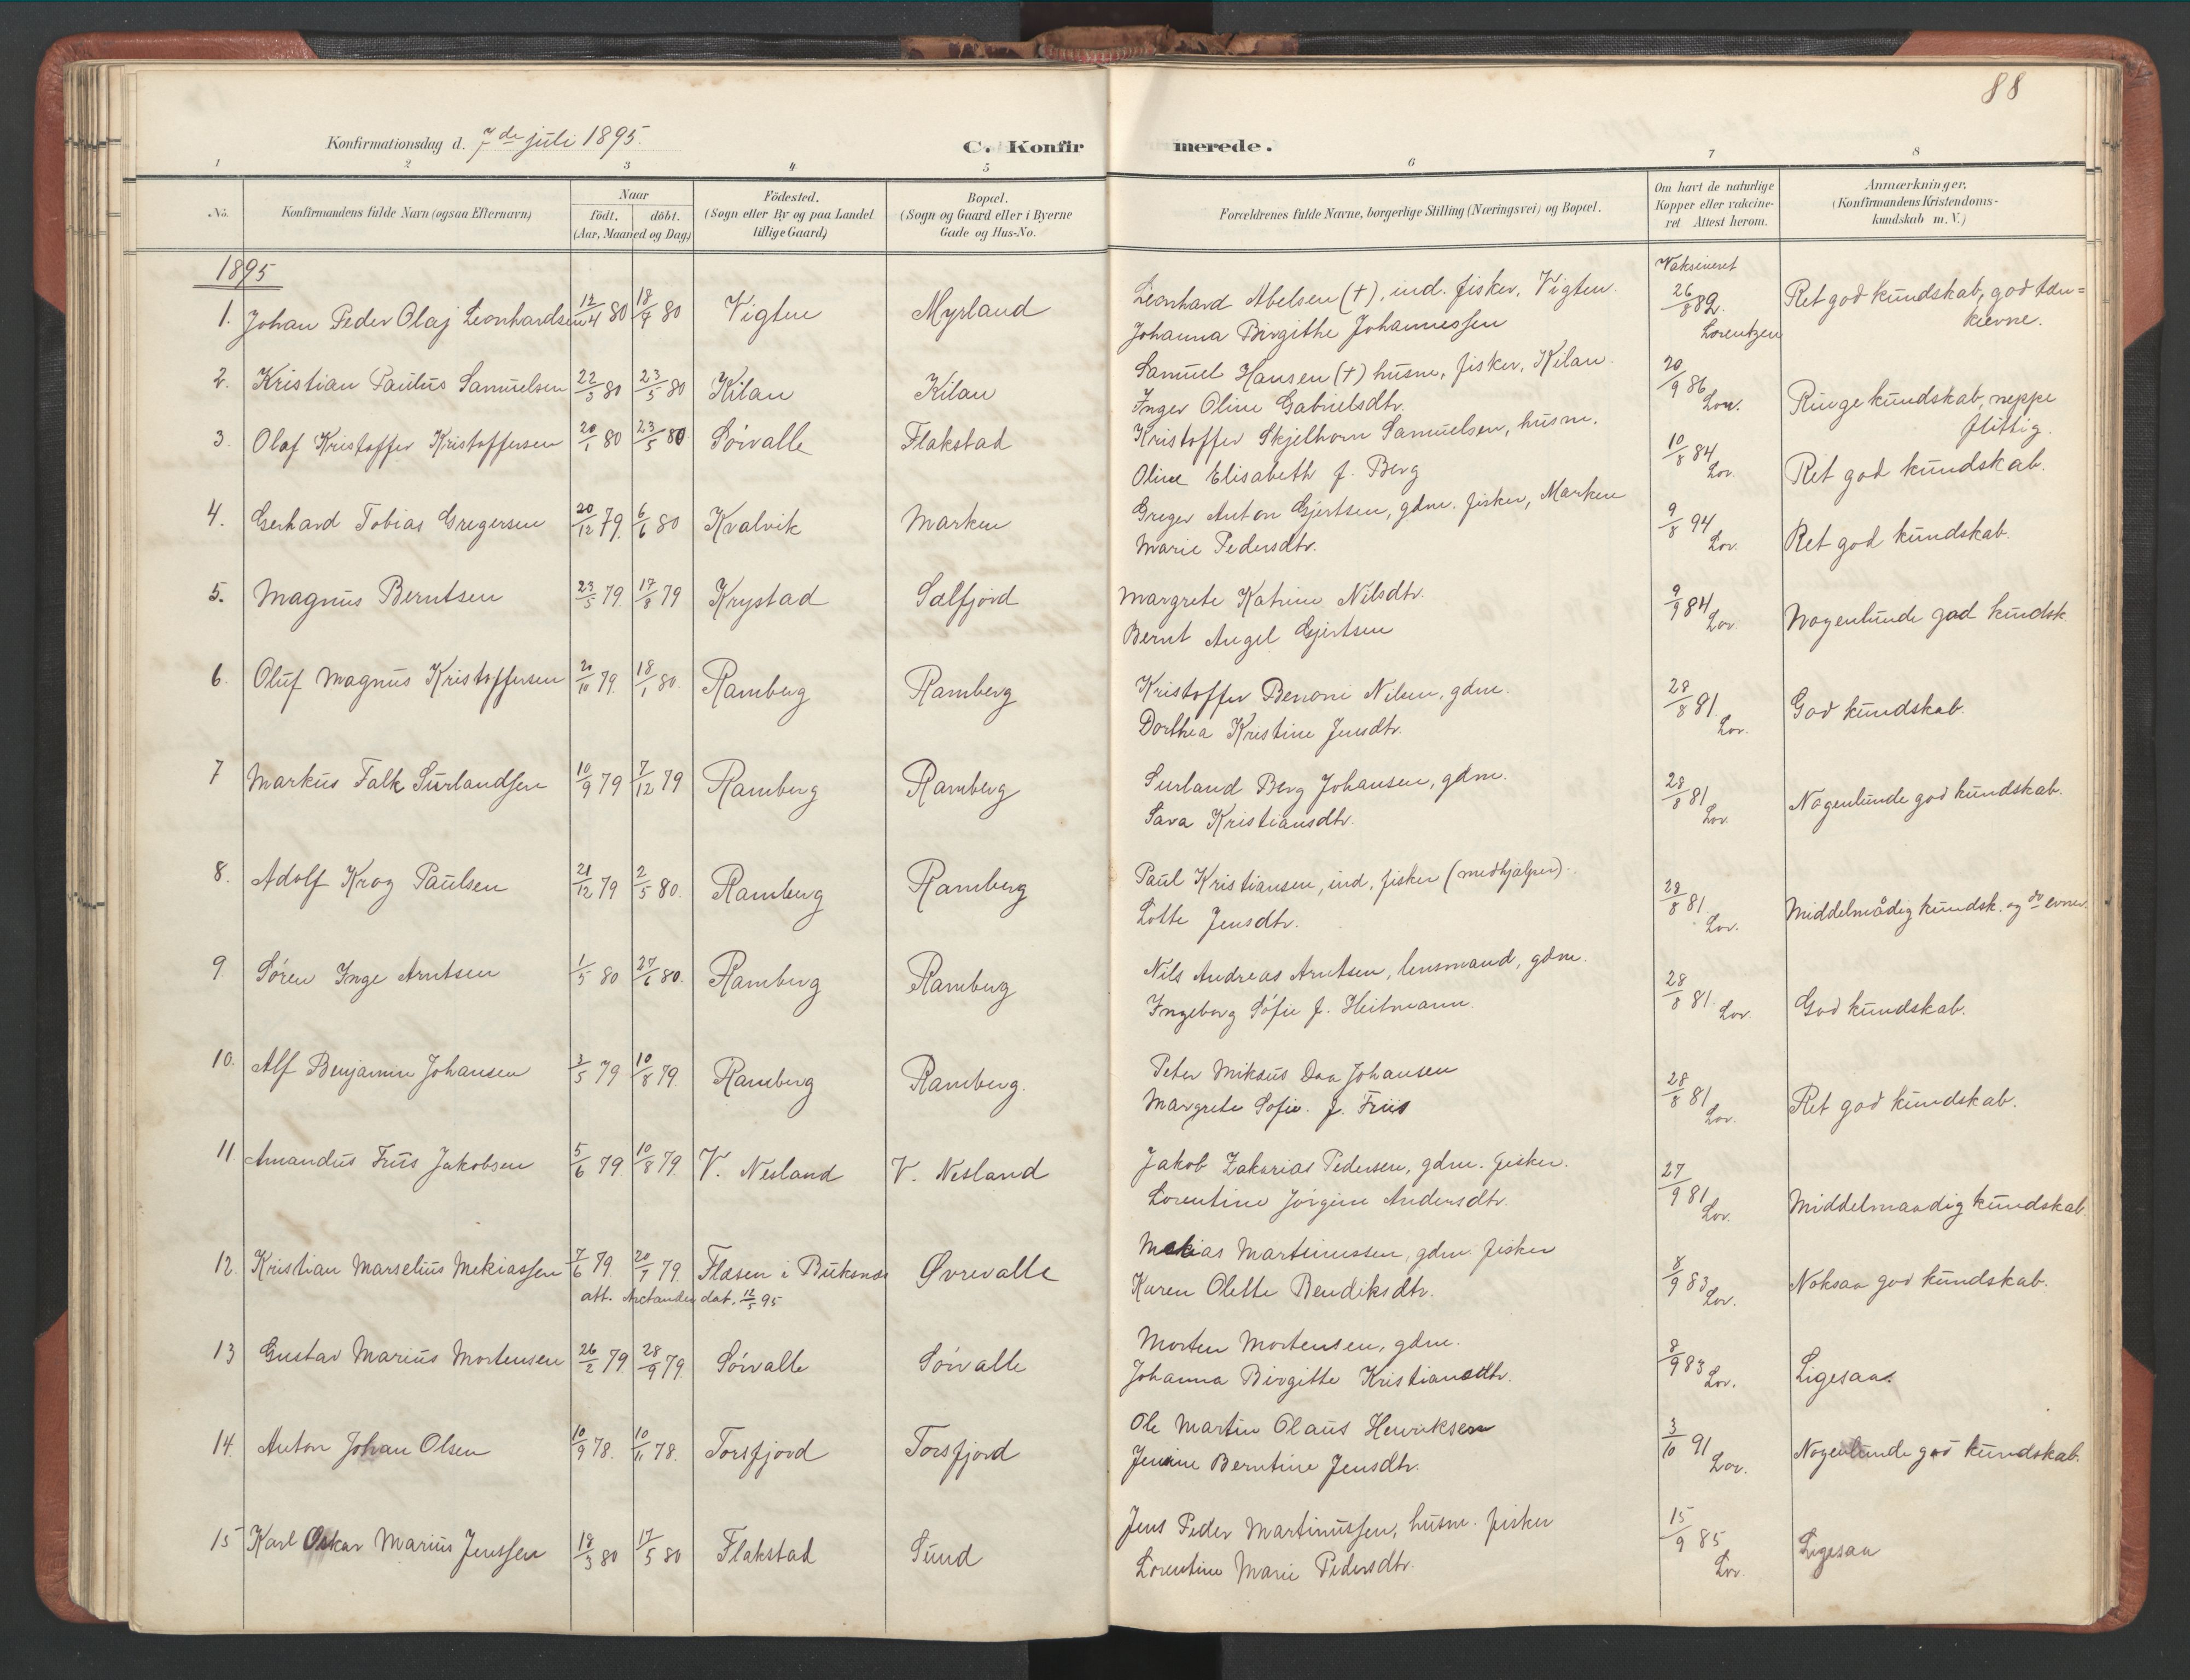 88
Konfirmationsdag d. 7de juli 1895.
C. Konfirmerede.
1 2 3 4 5 6 7 8
No.
Konfirmandens fulde Navn (ogsaa Efternavn)
Naar
födt. döbt.
(Aar, Maaned og Dag)
Födested.
(Sogn eller By og paa Landet
tillige Gaard)
Bopæl.
(Sogn og Gaard eller i Byerne
Gade og Hus-No.
Forældrenes fulde Navne, borgerlige Stilling (Næringsvei) og Bopæl.
Om havt de naturlige
Kopper eller vakcine-
ret Attest herom.
Anmærkninger,
(Konfirmandens Kristendoms-
kundskab m. V.)
1895
Vaksineret
1. Johan Peder Olaj Leonhardsen 12/4 80 18/4 80 Vigten Myrland Leonhard Abelsen (†), ind. fisker, Vigten. 26/8 82. Ret god kundskab, god tæn=
Johanna Birgithe Johannessen Lorentzen keevne.
2. Kristian Paulus Samuelsen 22/3 80 23/5 80 Kilan Kilan Samuel Hansen (†) husm, fisker, Kilan. 20/9 86 Ringe kundskab, neppe
Inger Oline Gabrielsdtr. Lor. flittig.
3. Olaf Kristoffer Kristoffersen 20/1 80 23/5 80 Sörvalle Flakstad Kristoffer Skjelhorn Samuelsen, husm. 10/8 84 Ret god kundskab.
Oline Elisabeth f. Berg Lor.
4. Gerhard Tobias Gregersen 20/12 79. 6/6 80 Kvalvik Marken Greger Anton Gjertsen, gdm. fisker, Marken 9/8 94 Ret god kundskab.
Marie Pedersdtr. Lor.
5. Magnus Berntsen 23/5 79. 17/8 79 Krystad Selfjord Margrete Katrine Nilsdtr. 9/9 84 Nogenlunde god kundsk.
Bernt Angel Gjertsen Lor.
6. Oluf Magnus Kristoffersen 21/10 79. 18/1 80. Ramberg Ramberg Kristoffer Benoni Nilsen, gdm. 28/8 81. God kundskab.
Dorthea Kristine Jensdtr. Lor.
7 Markus Falk Surlandsen 10/9 79 7/12 79 Ramberg Ramberg Surland Berg Johansen, gdm. 28/8 81 Nogenlunde god kundskab.
Sara Kristiansdtr. Lor.
8. Adolf Krog Paulsen 21/12 79 2/5 80. Ramberg Ramberg Paul Kristiansen, ind. fisker (medhjælper). 28/8 81. Middelmådig kundsk. og do evner.
Lotte Jensdtr. Lor.
9. Sören Inge Arntsen 1/5 80 27/6 80. Ramberg Ramberg Nils Andreas Arntsen, lensmand, gdm. 28/8 81. God kundskab.
Ingeborg Sofie f. Heitmann. Lor.
10. Alf Benjamin Johansen 3/5 79 10/8 79. Ramberg Ramberg. Peter Mikaus Daa Johansen 28/8 81 Ret god kundskab.
Margrete Sofie. f. Friis Lor.
11. Amandus Friis Jakobsen 5/6 79 10/8 79. V. Nesland V. Nesland Jakob Zakarias Pedersen, gdm. fisker. 27/9 81 Middelmaadig kundskab.
Lorentine Jörgine Andersdtr. Lor.
12. Kristian Marselius Mekiassen 7/6 79. 20/7 79. Flæsen i Buksnæs Øvrevalle Mekias Martinussen, gdm. fisker 8/9 83 Noksaa god kundskab.
att. Arctander dat. 12/5 95 Karen Olette Bendiksdtr. Lor.
13 Gustav Marius Mortensen 26/2 79. 28/9 79. Sörvalle Sörvalle Morten Mortensen, gdm. 8/9 83 Ligesaa.
Johanna Birgitte Kristiansdtr. Lor.
14. Anton Johan Olsen 10/9 78. 10/11 78. Torsfjord Torsfjord Ole Martin Olaus Henriksen 3/10 91 Nogenlunde god kundskab.
Jenine Berntine Jensdtr. Lor.
15 Karl Oskar Marius Jenssen 18/3 80 17/5 80 Flakstad Sund Jens Peder Martinussen, husm. fisker 15/9 85 Ligesaa
Lorentine Marie Pedersdtr. Lor.